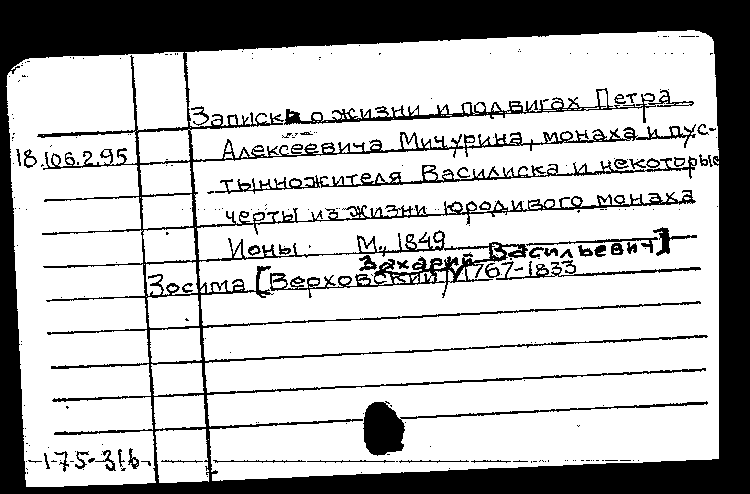 Записки о жизни и подвигах Петра
18.106.2.95 Алексеевича Мичурина, монаха и пус-
тынножителя Василиска и некоторые
черты из жизни юродивого монаха
Ионы. М., 1849.
Захарий Васильевич]
Зосима [Верховский, 1767-1833
175-316.